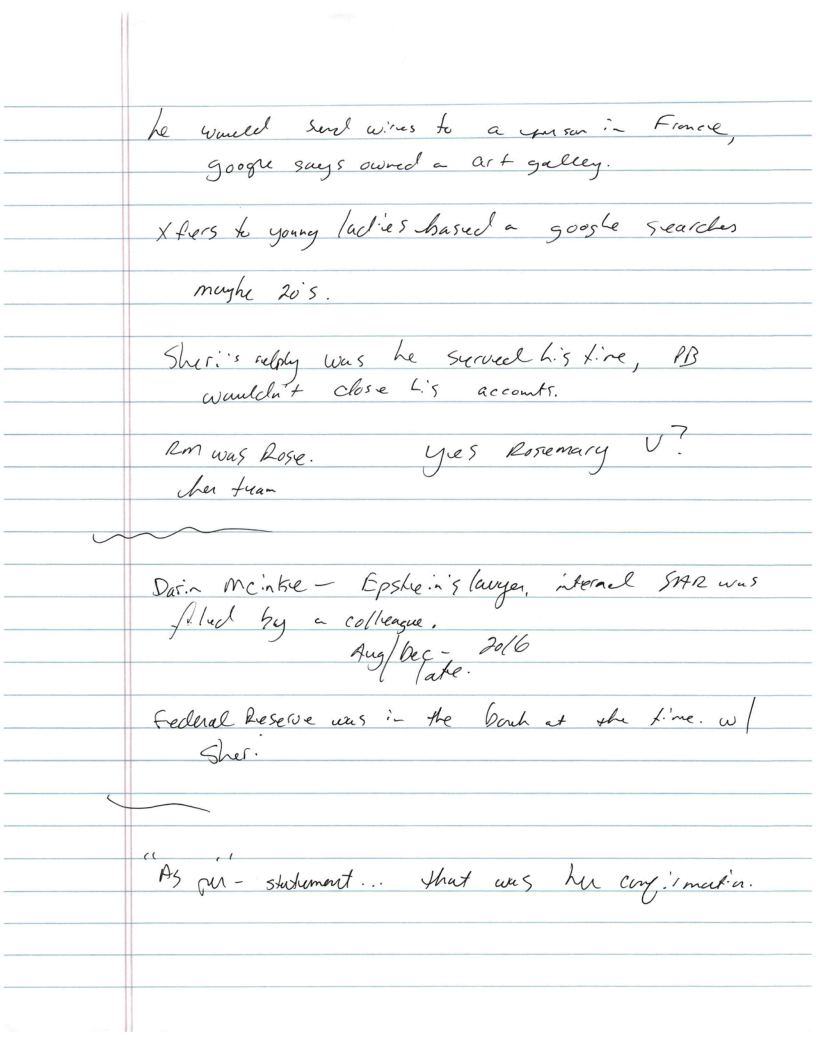 he would send wires to a person in France,
google says owned a art gallery.
Xfers to young ladies based on google searches
maybe 20's.
Sheri's reply was he served his time, PB
wouldn't close his accounts.
RM was Rose. Yes Rosemary V?
her team
Darin McIntire – Epstein's lawyer, internal SAR was
filed by a colleague.
Aug/Dec – 2016
late.
Federal Reserve was in the bank at the time. w/
Sheri
"As per" – statement... that was her confirmation.